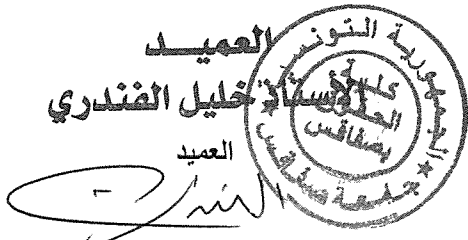 العميـــد
الأستاذ خليل الفندري
العميد
الجمهورية التونسية
كلية
الحقوق
بصفاقس
★ جامعة صفاقس ★